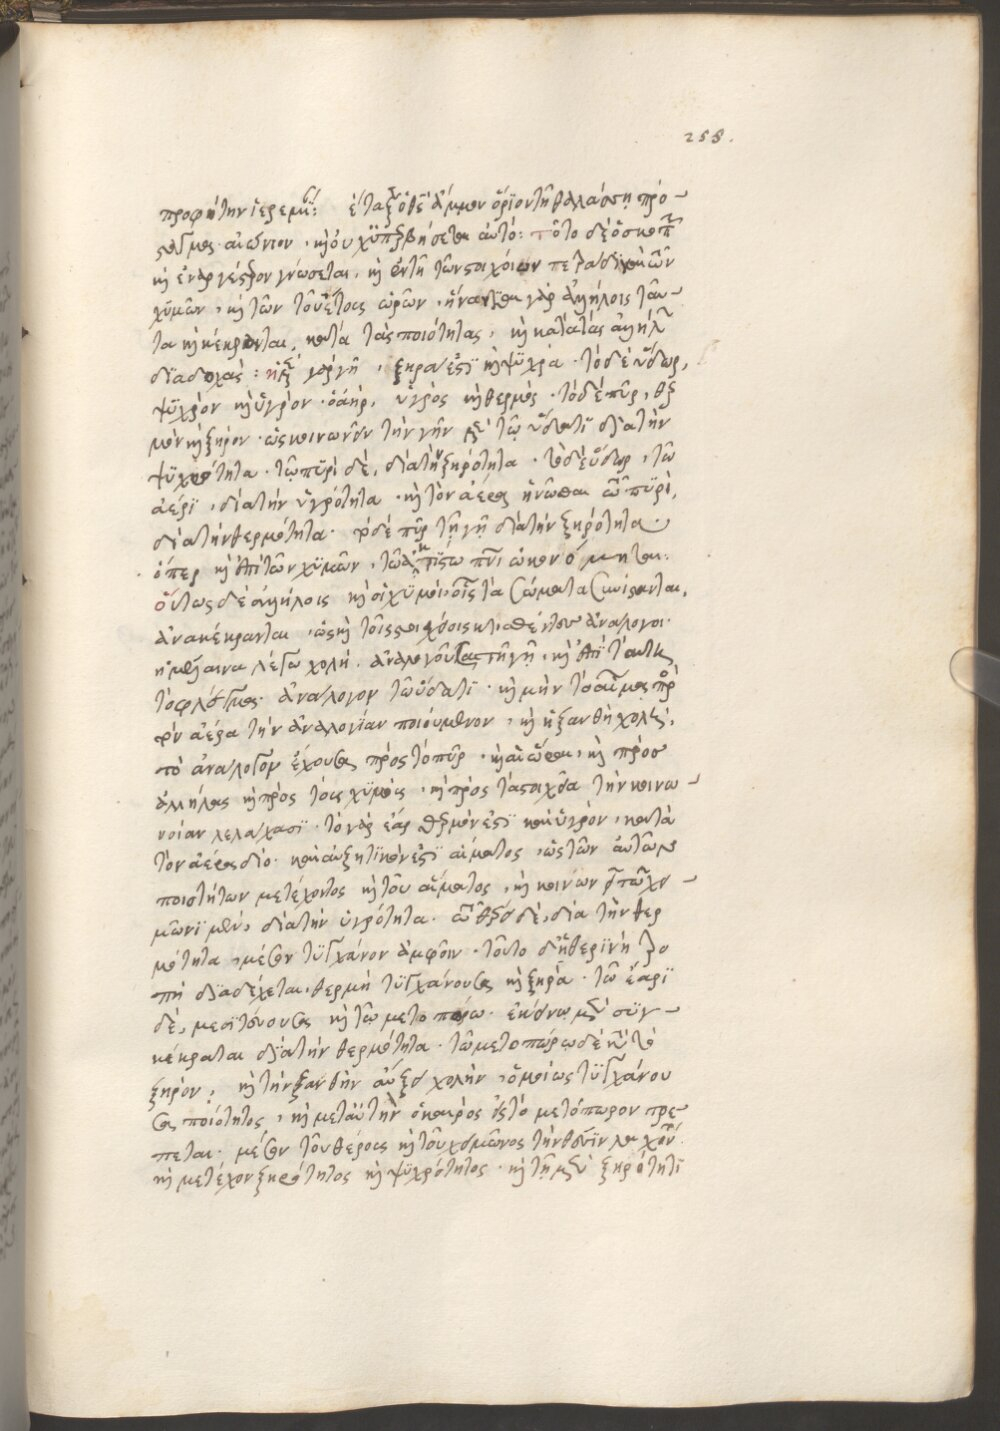 258.
προφήτην ἱερεμίαν: ἔταξεν ὁ θεὸς ἄμμον ὅριον τῇ θαλάσσῃ πρό-
σταγμα αἰώνιον. καὶ οὐχ ὑπερβήσεται αὐτό: τοῦτο δὲ ὁ σκοπῶν
καὶ ἐναργέστερον γνώσεται, καὶ ἐν τῇ τῶν στοιχείων τετραδικῶν
χυμῶν, καὶ τῶν τοῦ ἔτους ὡρῶν. ἥνωται γὰρ ἀλλήλοις ταῦ-
τα καὶ κέκραται, κατὰ τὰς ποιότητας, καὶ κατὰ τὰς ἀλλήλων
διαδοχάς: ἡ μὲν γὰρ γῆ, ξηρὰ ἐστὶ καὶ ψυχρά. τὸ δὲ ὕδωρ,
ψυχρὸν καὶ ὑγρόν. ὁ ἀὴρ, ὑγρὸς καὶ θερμός. τὸ δὲ πῦρ, θερ
μὸν καὶ ξηρόν. ὡς κοινωνεῖν τὴν γῆν μὲν τῷ ὕδατι διὰ τὴν
ψυχρότητα. τῷ πυρὶ δὲ, διὰ τὴν ξηρότητα. τὸ δὲ ὕδωρ, τῷ
ἀέρι, διὰ τὴν ὑγρότητα. καὶ τὸν ἀέρα ἡνῶσθαι τῷ πυρὶ,
διὰ τὴν θερμότητα. τὸ δὲ πῦρ τῇ γῇ διὰ τὴν ξηρότητα.
ὅπερ καὶ ἐπὶ τῶν χυμῶν, τῷ παντὶ ᾠκονόμηται:
οὕτως δὲ ἀλλήλοις καὶ οἱ χυμοὶ, οἷς τὰ σώματα συνίσταται,
ἀνακέκρανται, ὡς καὶ τοῖς στοιχείοις ἀνάλογοι.
ἡ μέλαινα λέγω χολή. ἀναλογοῦσα τῇ γῇ, καὶ ἐπὶ ταύτης
τὸ φλέγμα ἀνάλογον τῷ ὕδατι. καὶ μὴν τὸ αἷμα πρὸς
τὸν ἀέρα τὴν ἀναλογίαν ποιούμενον, καὶ ἡ ξανθὴ χολή,
τὸ ἀνάλογον ἔχουσα πρὸς τὸ πῦρ. καὶ αἱ ὧραι, καὶ πρὸς
ἀλλήλας καὶ πρὸς τοὺς χυμοὺς, καὶ πρὸς τὰ στοιχεῖα τὴν κοινω-
νίαν λελάχασι. τὸ γὰρ ἔαρ θερμόν ἐστὶ καὶ ὑγρὸν, κατὰ
τὸν ἀέρα διὸ. καὶ αὐξητικόν ἐστὶ αἵματος, ὡς τῶν αὐτῶν
ποιοτήτων μετέχοντος καὶ τοῦ αἵματος, καὶ κοινων τῷ χει-
μῶνι μὲν, διὰ τὴν ὑγρότητα. τῷ θέρει δὲ, διὰ τὴν θερ
μότητα, μέσον τυγχάνον ἀμφοῖν. τοῦτο δὲ ἡ θερινὴ τρο
πὴ διαδέχεται, θερμὴ τυγχάνουσα καὶ ξηρά. τῷ ἔαρι
δὲ, μεσιτεύουσα καὶ τῷ μετοπώρῳ. ἐκείνῳ μὲν συγ-
κέκραται διὰ τὴν θερμότητα. τῷ μετοπώρῳ δὲ κατὰ τὸ
ξηρόν, καὶ τὴν ξανθὴν αὔξει χολὴν, ὁμοίως τυγχάνου
σα ποιότητος, καὶ μετὰ αὐτὴν ὁ καιρὸς εἰς τὸ μετόπωρον τρέ-
πεται. μέσον τοῦ θέρους καὶ τοῦ χειμῶνος τὴν θέσιν λαχὸν.
καὶ μετέχον ξηρότητος καὶ ψυχρότητος. καὶ τῇ μὲν ξηρότητι